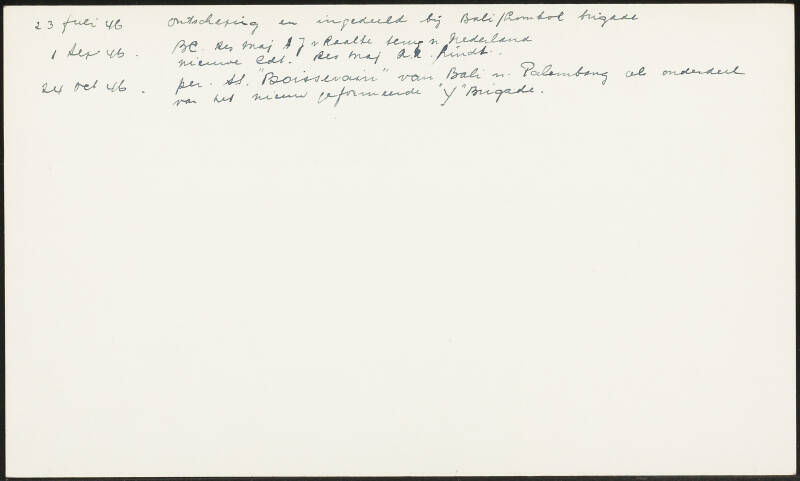 23 Juli 46 ontscheping en ingedeeld bij Bali/Lombok brigade
1 Sep 46. BC. Res Maj A J v Raalte terug n. Nederland
nieuwe Cdt. Res Maj
24 Oct 46. per. ss. "Boissevain" van Bali n. Palembang als onderdeel
van het nieuw geformeerde "Y" Brigade.